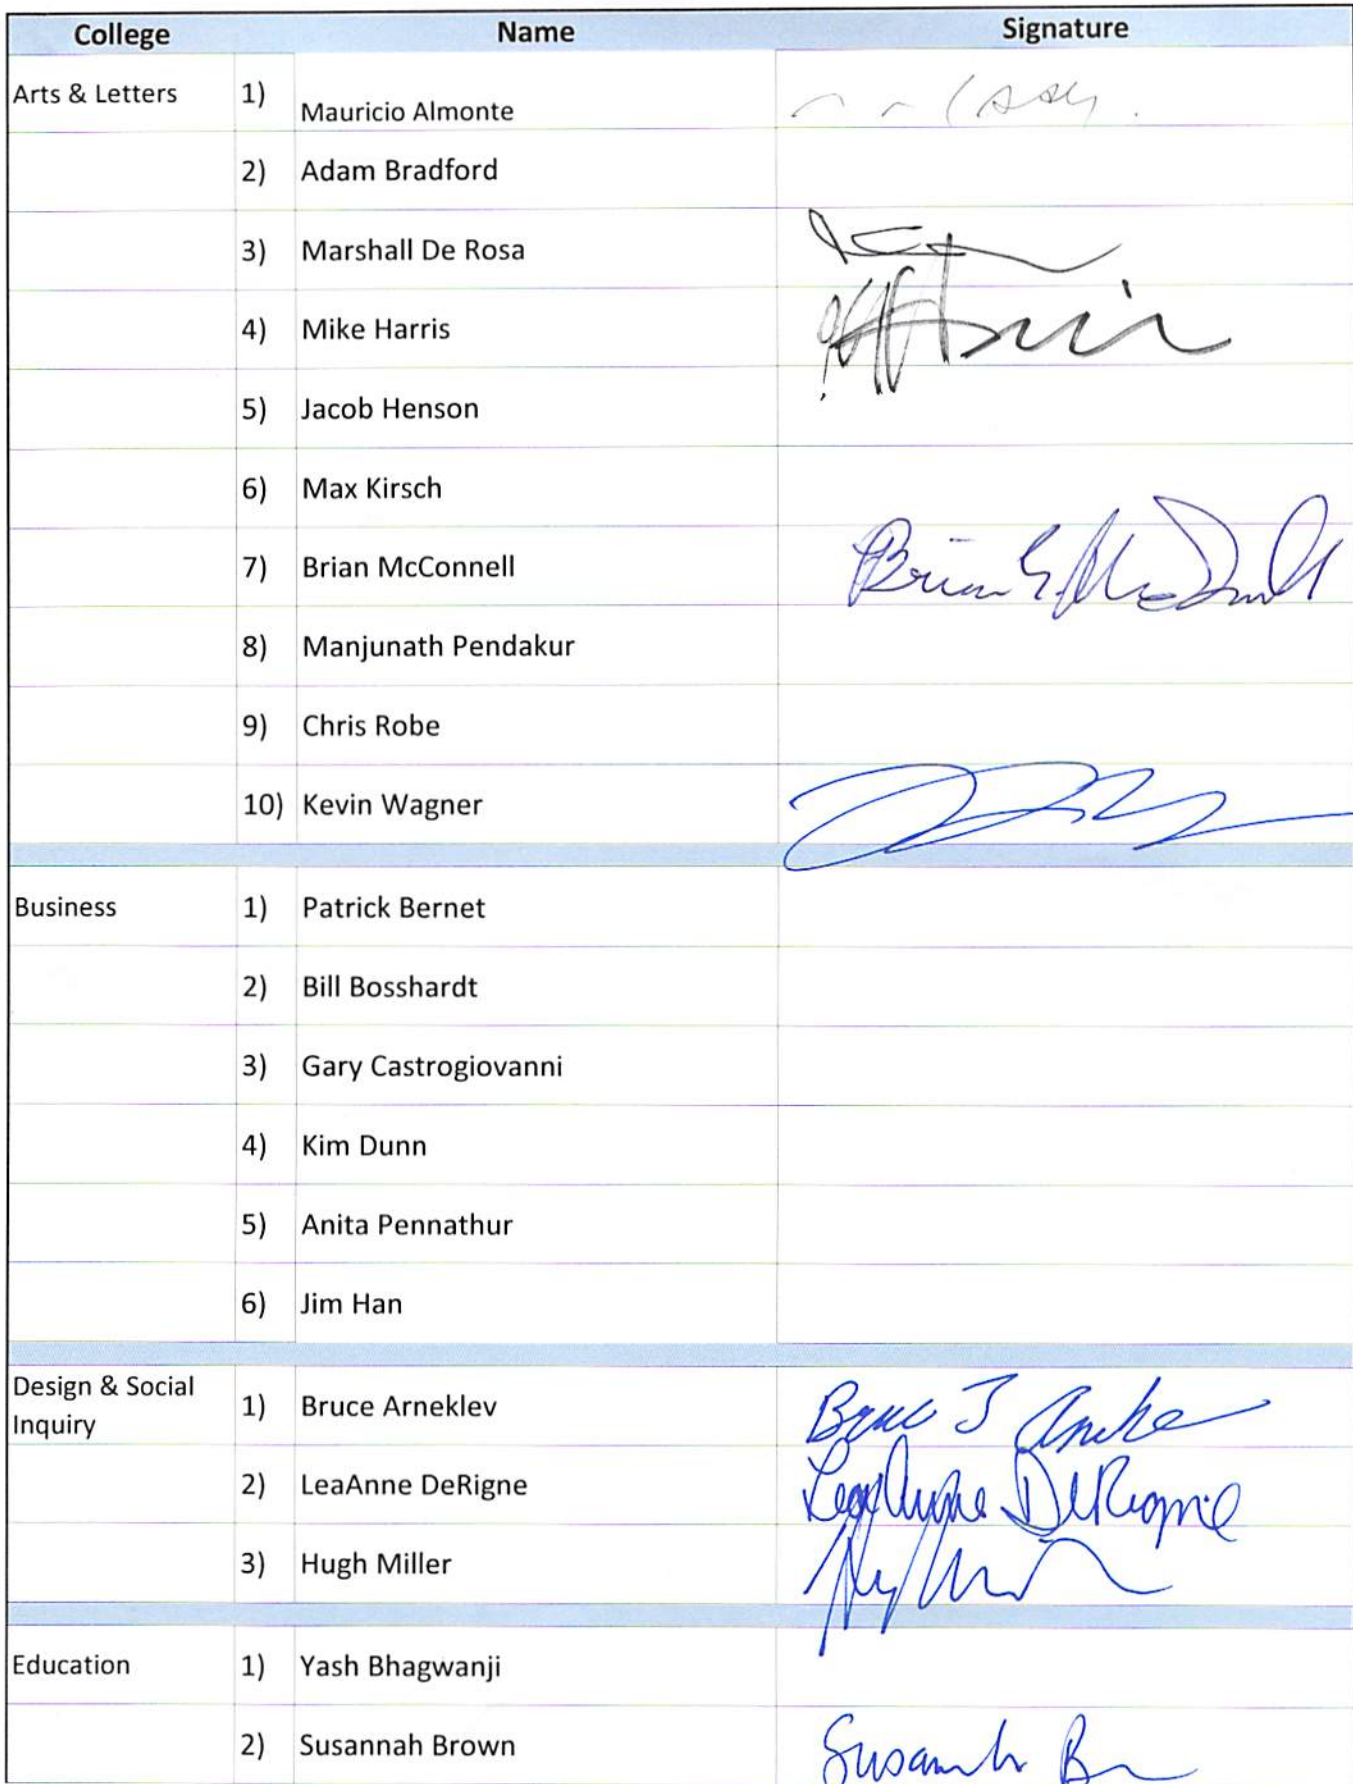 College Name Signature
Arts & Letters 1) Mauricio Almonte
2) Adam Bradford
3) Marshall De Rosa
4) Mike Harris
5) Jacob Henson
6) Max Kirsch
7) Brian McConnell Brian
8) Manjunath Pendakur
9) Chris Robe
10) Kevin Wagner
Business 1) Patrick Bernet
2) Bill Bosshardt
3) Gary Castrogiovanni
4) Kim Dunn
5) Anita Pennathur
6) Jim Han
Design & Social
Inquiry
1) Bruce Arneklev Bruce J
2) LeaAnne DeRigne LeaAnne DeRigne
3) Hugh Miller
Education 1) Yash Bhagwanji
2) Susannah Brown